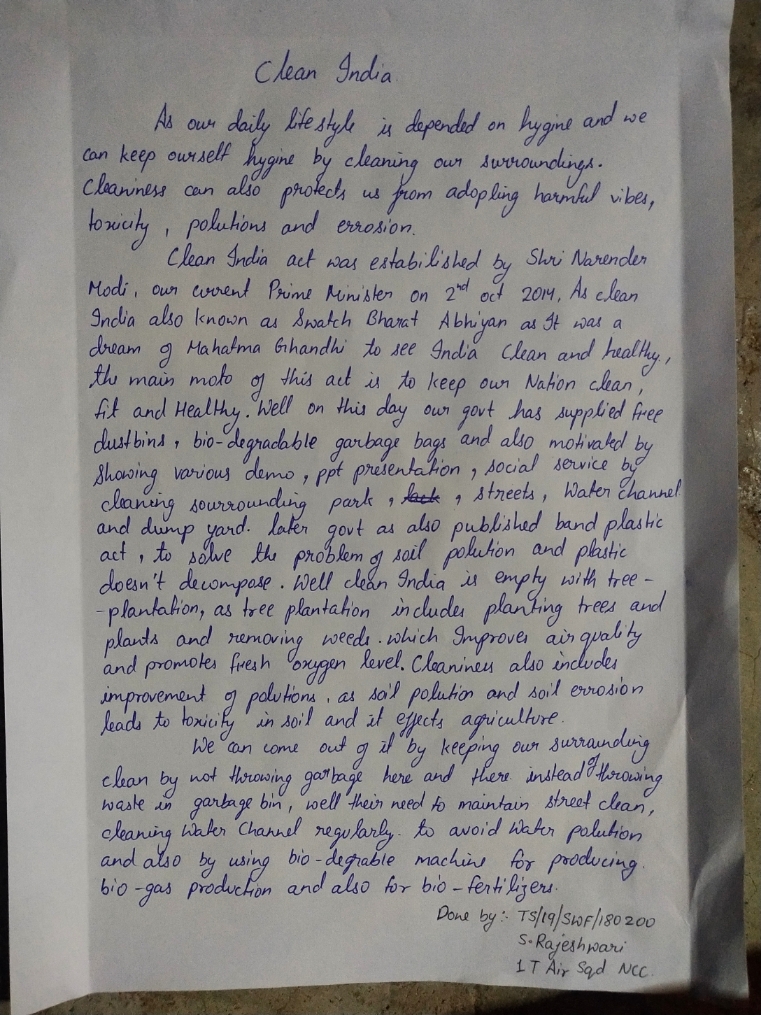 Clean India
As our daily lifestyle is depended on hygine and we
can keep ourself hygine by cleaning our surroundings.
Cleaniness can also protects us from adopling harmful vibes,
toxicity, polutions and errosion.
Clean India act was estabilished by Shri Narender
Modi, our current Prime Minister on 2nd oct 2014, As clean
India also known as Swatch Bharat Abhiyan as It was a
dream of Mahatma Ghandhi to see India Clean and healthy,
the main moto of this act is to keep our Nation clean,
fit and Healthy. Well on this day our govt has supplied free
dustbins, bio-degradable garbage bags and also motivated by
Showing various demo, ppt presentation, social service by
cleaning sourrounding park, lack, streets, Water channel
and dump yard. later govt as also published band plastic
act, to solve the problem of soil polution and plastic
doesn't decompose. Well clean India is empty with tree-
-plantation, as tree plantation includes planting trees and
plants and removing weeds. which Improves air quality
and promotes fresh oxygen level. Cleaniness also includes
improvement of polutions, as soil polution and soil errosion
leads to toxicity in soil and it effects agriculture.
We can come out of it by keeping our surrounding
clean by not throwing garbage here and there instead of throwing
waste in garbage bin, well their need to maintain street clean,
cleaning Water Channel regularly. to avoid Water polution
and also by using bio-degrable machine for producing.
bio-gas production and also for bio-fertilizers.
Done by:- TS/19/SWF/180200
S. Rajeshwari
1 T Air Sqd NCC.